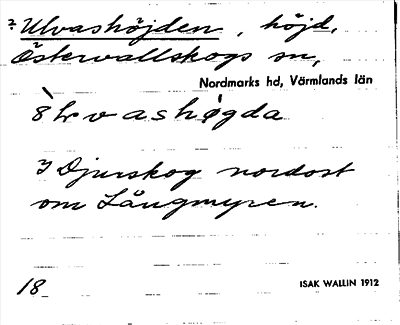 2 Ulvashöjden, höjd,
Östervallskogs sn,
Nordmarks hd, Värmlands län
vashøgda
3/ Djurskog nordost
om Långmyren.
18
ISAK WALLIN 1912